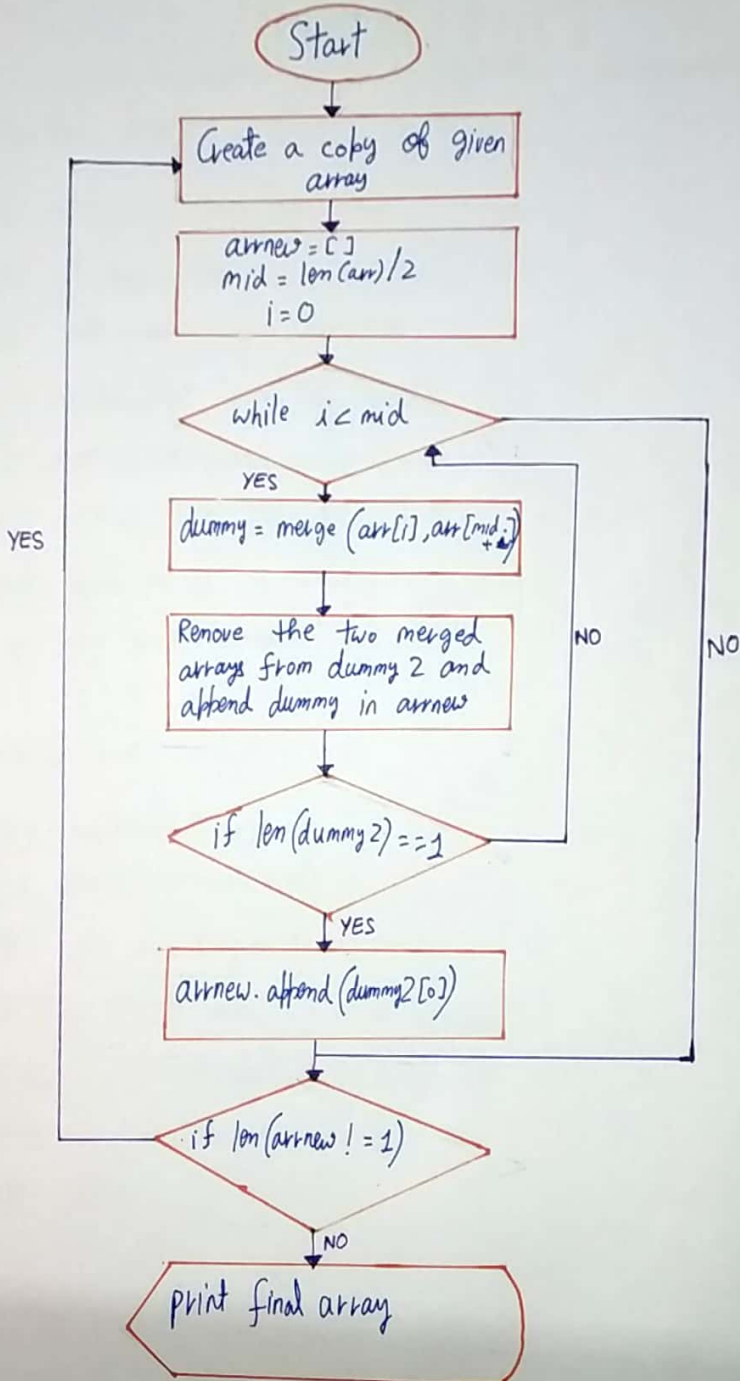 Start
Create a copy of given
array
arrnew = [ ]
mid = len(arr)/2
i = 0
while i < mid
YES
dummy = merge (arr[i], arr[mid
+
Remove the two merged
arrays from dummy 2 and
append dummy in arrnew
NO
NO
YES
if len(dummy2) == 1
YES
arrnew.append(dummy2[0])
if len(arrnew != 1)
NO
print final array